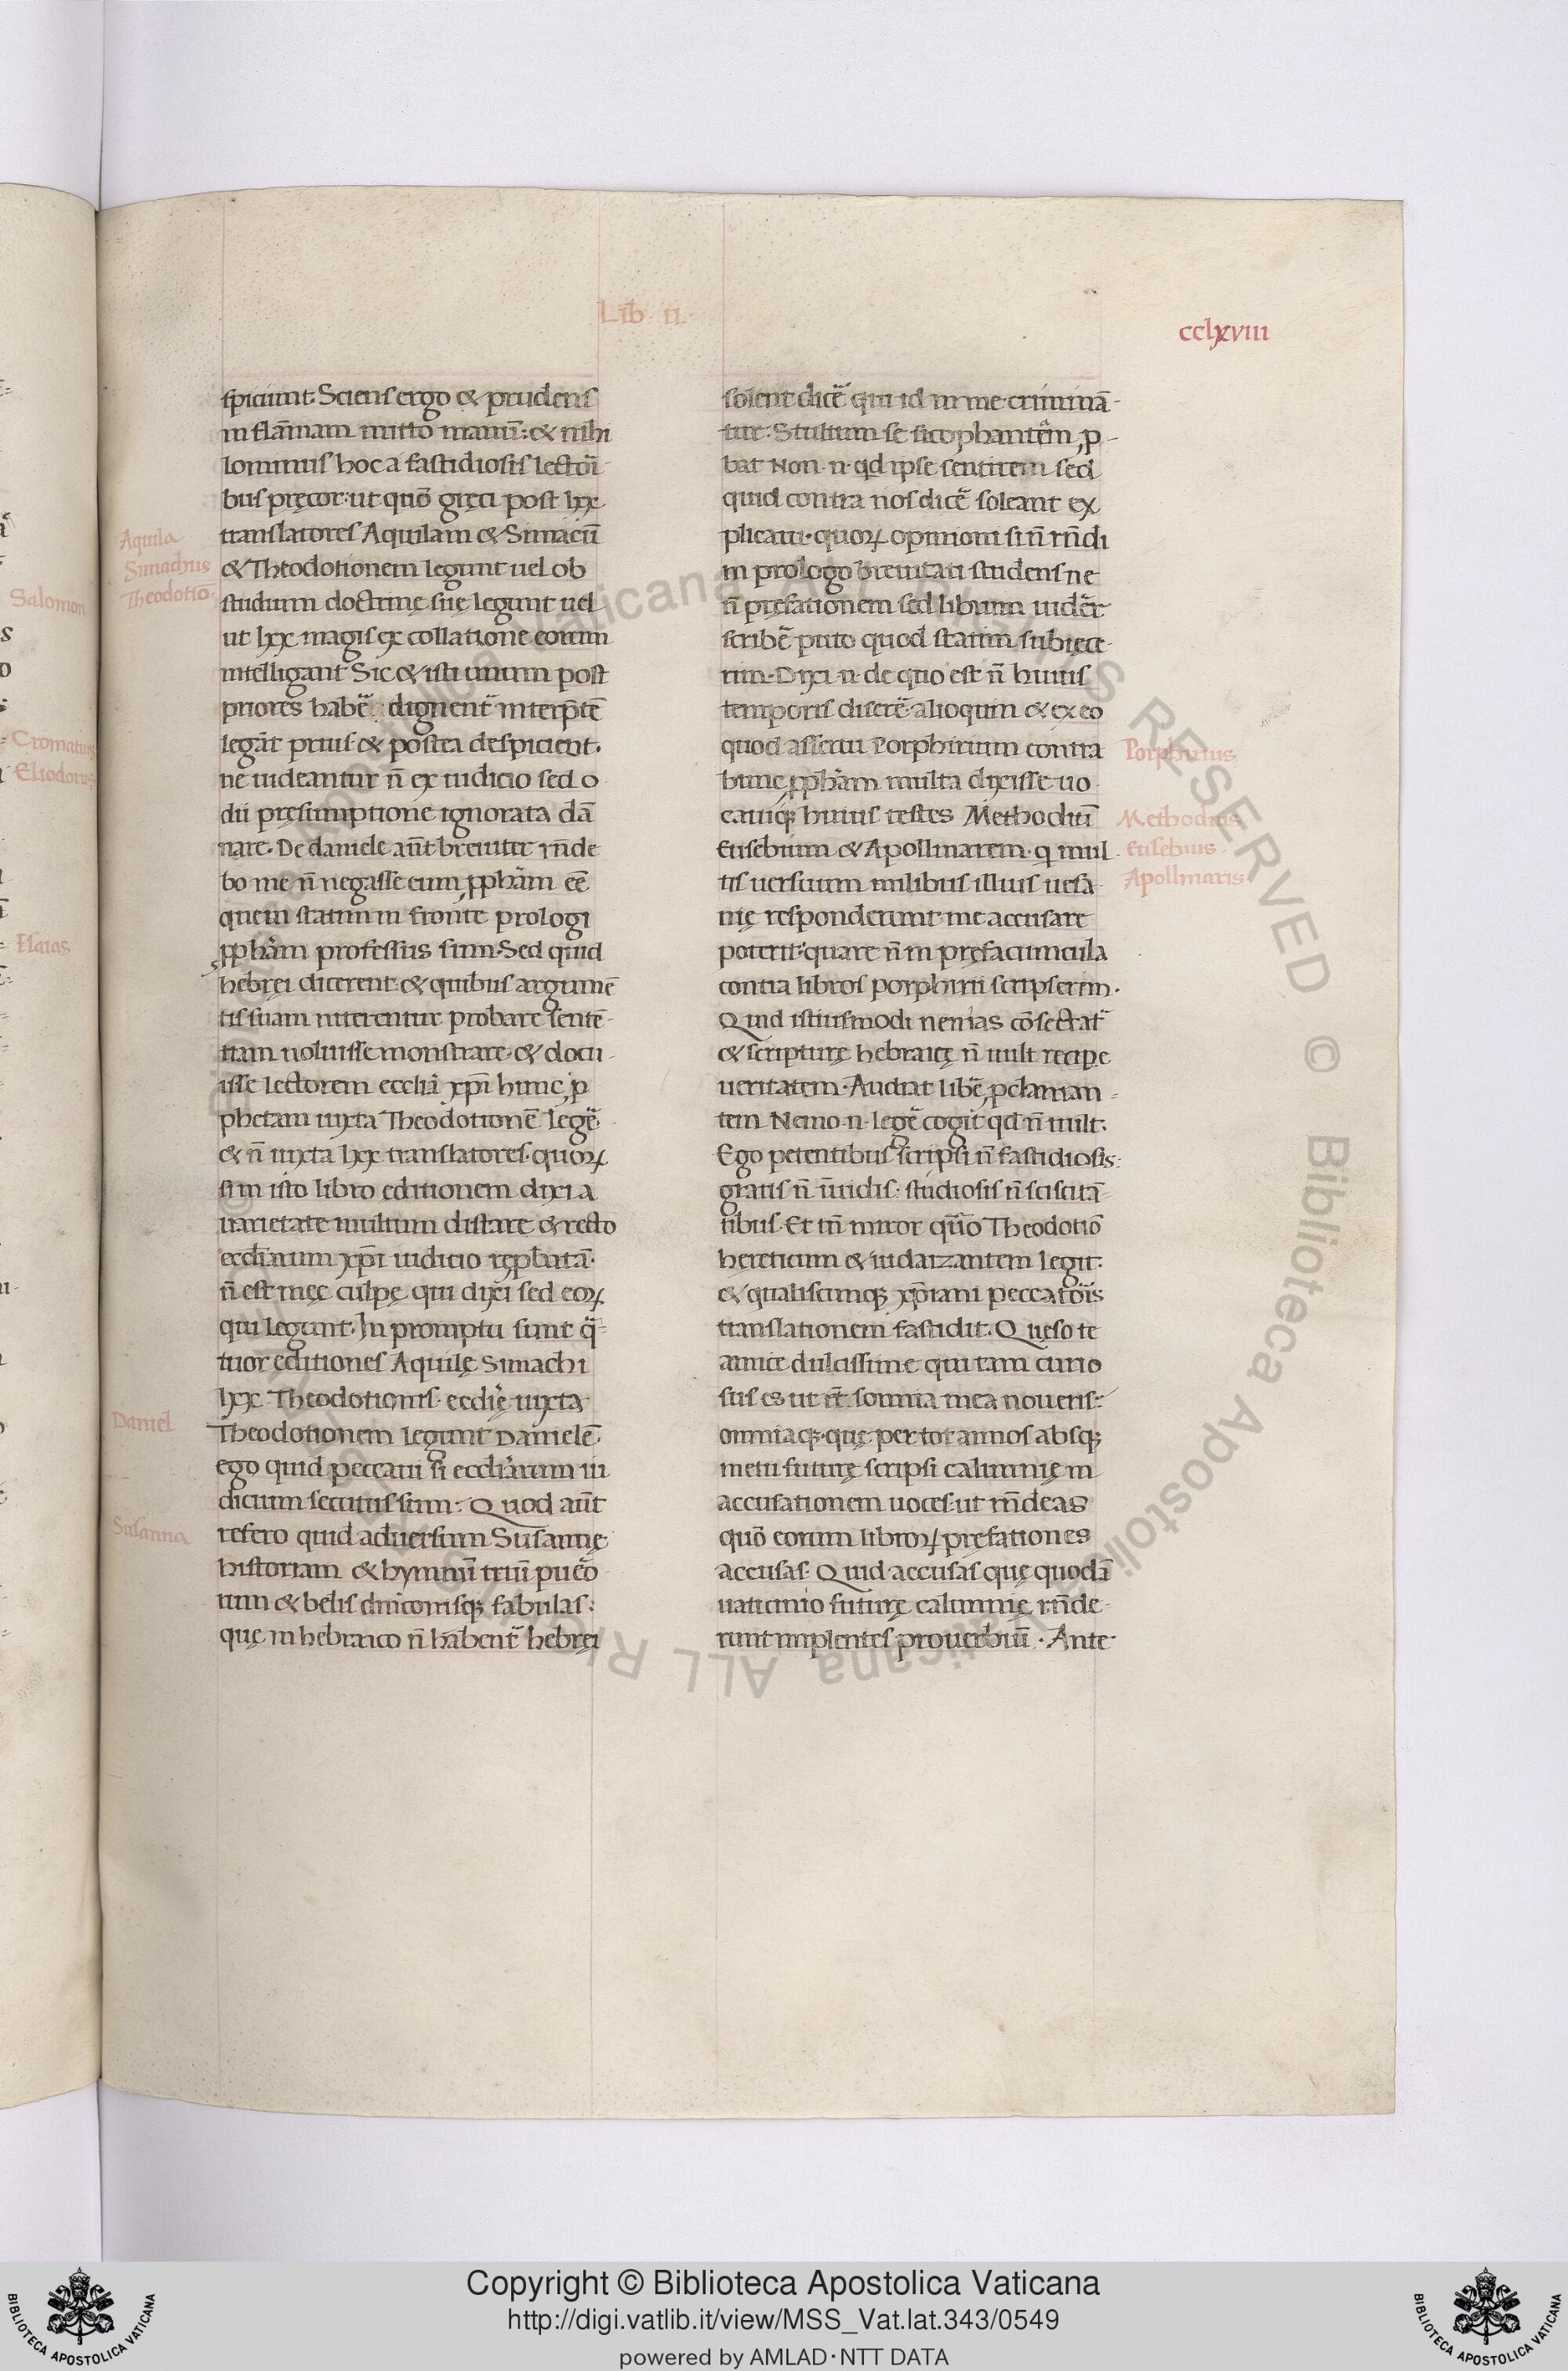 Lib. II.
cclxviii
spiciunt. Sciens ergo & prudens
in flãmam mitto manũ: & nihi
lominus hoc a fastidiosis lectori
bus pręcor: ut quõ gręci post lxx
translatores Aquilam & Simacũ
& Theodotionem legunt uel ob
studium doctrinę suę legunt uel
ut lxx magis ex collatione eorum
intelligant Sic & isti unum post
priores habē dignent᷑ interp̄tē
legāt prius & postea despiciant.
ne uideantur n̄ ex iudicio sed o
dii pręsumptione ignorata dā
nare. De daniele aūt breuiter rn̄de
bo me n̄ negasse eum ꝓpham eē
quem statim in fronte prologi
ꝓpham professus sum. Sed quid
hebręi dicerent & quibus argumē
tis suam niterentur probare sentē
tiam uoluisse monstrare & docu
isse lectorem eccliā xp̄i hunc ꝓ
phetam iuxta Theodotionē legē
& n̄ iuxta lxx translatores. quoꝝ
si in isto libro editionem dixi a
uarietate multum distare & recto
eccl̄iarum xp̄i iudicio rep̱batā.
n̄ est męę culpę qui dixi sed eoꝝ
qui legunt. In promptu sunt q̄
tuor editiones Aquilę Simachi
lxx Theodotionis. eccl̄ię iuxta
Theodotionem legunt Danielē.
ego quid peccaui si eccl̄iarum iu
dicium secutus sum. Quod aūt
refero quid aduersum Susannę
historiam & hymnū triū puero
rum & belis draconisqꝫ fabulas:
quę in hebraico n̄ habent᷑ hebręi
solent dicē qui id in me criminā
tur. Stultum se sicophantem ꝓ
bat Non .n. qd ipse sentirem sed
quid contra nos dicē soleant ex
plicaui. quoꝝ opinioni si n̄ rn̄di
in prologo breuitati studens ne
n̄ pręfationem sed librum uiderer
scribē puto quod statim subiece
rim. Dixi .n. de quo est n̄ huius
temporis diserē alioquin & ex eo
quod asserui Porphirium contra
hunc ꝓpham multa dixisse uo
cauiqꝫ huius testes Methodiū
Eusebium & Apollinarem. q mul
tis uersuum milibus illius uesā
nię responderunt me accusare
poterit. quare n̄ in pręfaciuncula
contra libros porphirii scripserim.
Quid istiusmodi nenias cōsectat᷑
& scripturę hebraicę n̄ uult recipe
ueritatem. Audiat libē ꝓclaman
tem Nemo .n. legē cogit qd n̄ uult.
Ego petentibus scripsi n̄ fastidiosis:
gratis n̄ inuidis: studiosis n̄ oscitā
tibus. Et tn̄ miror quō Theodotiō
hereticum & iudaizantem legit:
& qualiscunqꝫ xp̄iani peccatoris
translationem fastidit. Quęso te
amice dulcissime qui tam curio
sus es ut et somnia mea noueris:
omniaqꝫ. quę per tot annos absqꝫ
metu futurę scripsi calumnię in
accusationem uoces. ut rn̄deas
quō eorum libroꝝ pręfationes
accusas. Quid accusas quę quodā
uaticinio futurę calumnię rn̄de
runt implentes prouerbiū. Ante
Aquila
Simachus
Theodotio
Daniel
Susanna
Porphirius
Methodius
Eusebius
Apollinaris
Salomon
Cromatius
Eliodorus
Esaias
© Biblioteca Apostolica Vaticana ALL RIGHTS RESERVED © Biblioteca Apostolica Vaticana ALL RIGHTS RESERVED
Copyright © Biblioteca Apostolica Vaticana
http://digi.vatlib.it/view/MSS_Vat.lat.343/0549
powered by AMLAD·NTT DATA
BIBLIOTECA APOSTOLICA VATICANA
BIBLIOTECA APOSTOLICA VATICANA